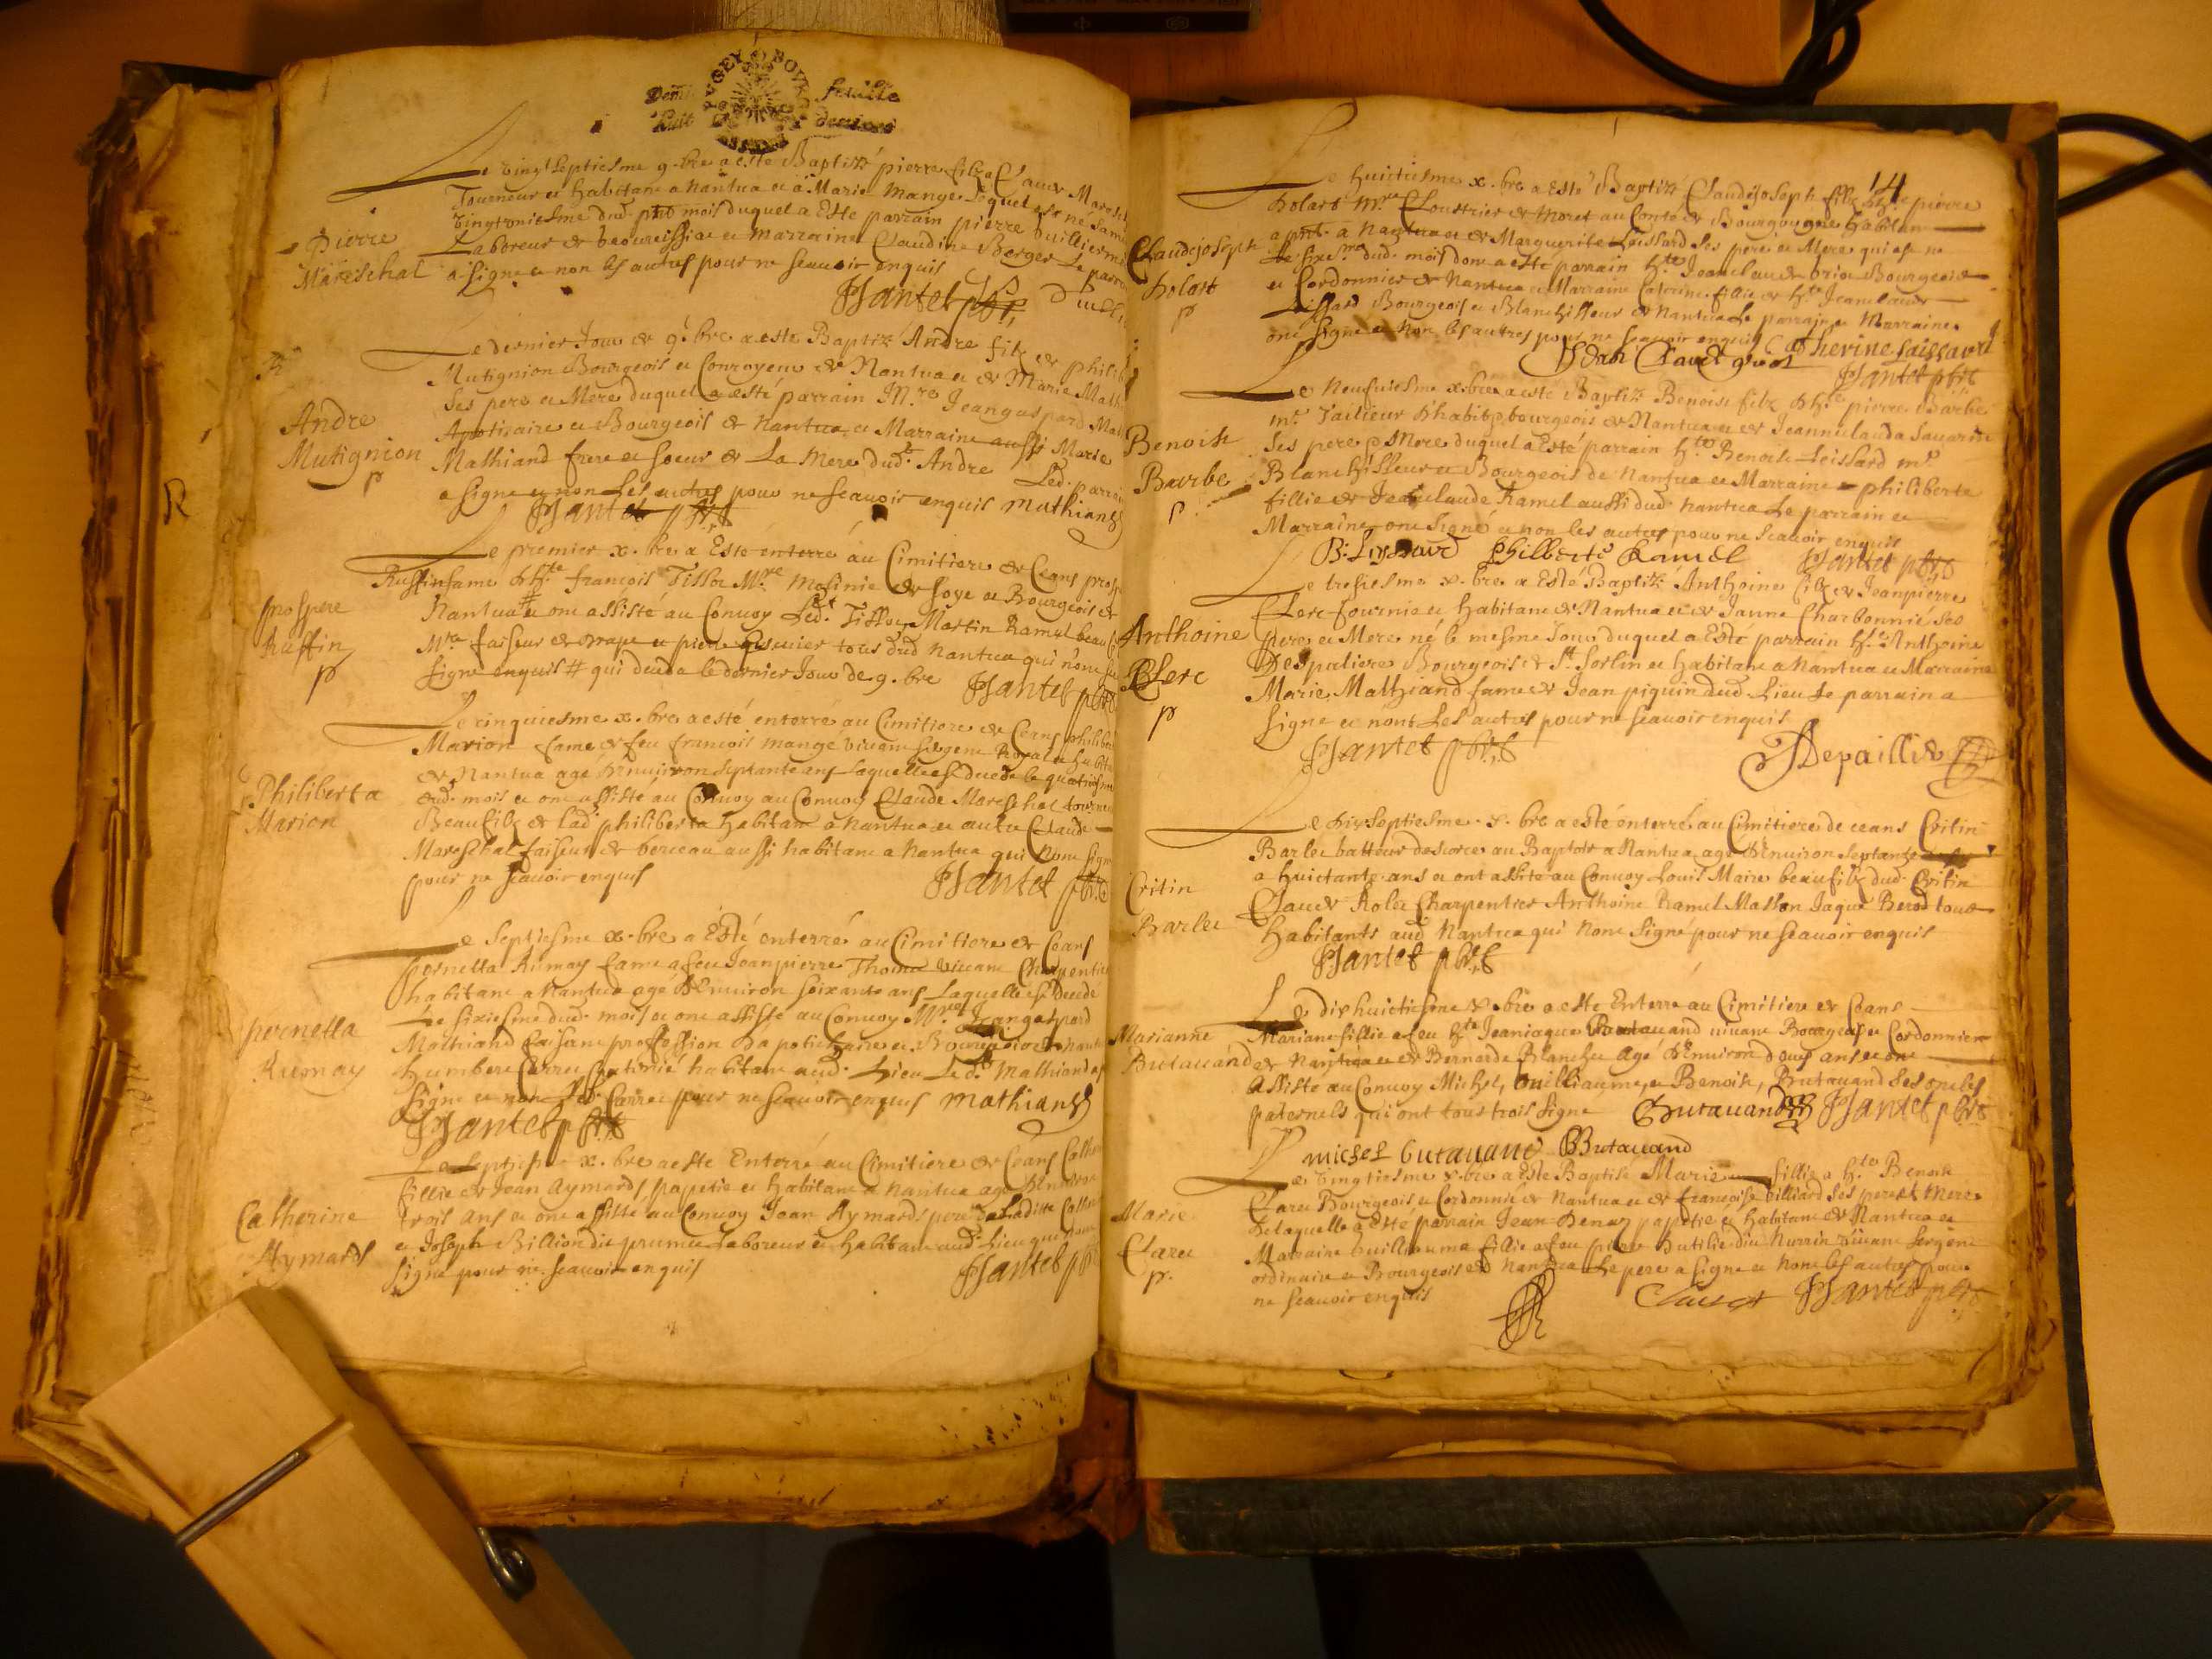 BVGEY BOV
Demi feuille
huit deniers
Le vingt septiesme 9.bre a este Baptizé pierre filz a Claude Mares
Tourneur et habitant a nantua et a Marie Mange lequel est né Same
vingtroisiesme dud. pnt mois duquel a Este parrain pierre Guillierm
Laboreur de et marraine Claudine Berger Le parra
a signe et non les autres pour ne scauoir enquis
Pierre
Mareschal
Jantet pbre
Le dernier Jour de 9.bre a esté Baptizé Andre filz de philib
Mutignion Bourgeois et Conroyeur de Nantua et de Marie Math
ses pere et Mere duquel a esté parrain M.re Jeangaspard Mat
Apoticaire et Bourgeois de nantua et Marraine aussi Marie
Mathiand frere et soeur de La Mere dud. Andre Led. parrain
a signe et non Les autres pour ne scauoir enquis Mathiand
Andre
Mutignion
p
Jantet pbre
R
Le premier x.bre a Esté enterré au Cimitiere de Ceans prosp
Ruffin fame d'h.te francois Tissot M.re de soye et Bourgeois de
Nantua # et ont assisté au Conuoy Led. Tissot Martin Ramel beau
M.re faiseur de drap et pierre tous dud nantua qui n'ont sce
signe enquis # qui deceda le dernier Jour de 9.bre
Prospere
Ruffin
p
Jantet pbre
Le cinquiesme x.bre a esté enterré au Cimitiere de Ceans philibe
Marion fame de feu francois mange viuant sergent Royal et habita
de Nantua agé d'enuiron septante ans Laquelle est decede le quatriesme
dud. mois et ont assisté au Conuoy au Conuoy Claude Mareschal tourneu
Beaufilz de lad. philiberta habitant a nantua et autre Claude
Mareschal faiseur de berceau aussi habitant a nantua qui n'ont signe
pour ne scauoir enquis
Philiberta
Marion
Jantet pbre
Le Septiesme x.bre a Esté enterré au Cimitiere de Ceans
pernetta Rumay fame a feu Jeanpierre Thoma viuant Charpentie
habitant a Nantua agé d'Enuiron soixante ans Laquelle est decede
Le sixiesme dud. mois et ont assisté au Conuoy M.re Jeangaspard
Mathiand faisant proffession d'apoticaire et Bourgeois de nantu
humbert Carre habitant aud. Lieu Led. Mathiand a
signe et non led. Carre pour ne scauoir enquis Mathiand
pernetta
Rumay
Jantet pbre
Le Septiesme x.bre a esté Enterré au Cimitiere de Ceans Cathe
fillie de Jean Aymard, papetie et habitant a nantua agé d'Enuiron
trois ans et ont assisté au Conuoy Jean Aymard pere de laditte Cathe
et Joseph Billion dit prumie Laboreur et habitant aud. Lieu qui n'ont
signe pour ne scauoir enquis
Catherine
Aymard
Jantet pbre
14
Le huictiesme x.bre a Esté Baptizé Claudejoseph filz d'h.te pierre
Dolard M.re Cloustrier de Moret au Conté de Bourgougne habitan
a pnt. a Nantua et de Marguerite Leissard ses pere et Mere qui est né
Le sixe.me dud. mois dont a esté parrain h.te Jeanclaude Bourgeois
et Cordonnier de Nantua et Marraine Caterine fillie de h.te Jeanclaude
Leissard Bourgeois et Blanchisseur de Nantua Le parrain et Marraine
ont signe et non les autres pour ne scauoir enquis
Claudejoseph
Dolard
p
Catherine laissard
Jantet pbre
Le neufuiesme x.bre a esté Baptizé Benoist filz d'h.te pierre Barbe
m.e Tailieur d'habit bourgeois de Nantua et de Jeanneclauda Sauarin
ses pere et Mere duquel a Esté parrain h.te Benoist Leissard m.e
Blanchisseur et Bourgeois de nantua et Marraine philiberte
fillie de Jeanclaude Ramel aussi dud. nantua Le parrain et
Marraine ont signé et non les autres pour ne scauoir enquis
Benoist
Barbe
p
B. Leissard philiberte Ramel Jantet pbre
Le tresiesme x.bre a Esté Baptizé Anthoine filz de Jeanpierre
Clerc fournie et habitant de Nantua et de Janne Charbonnié ses
pere et Mere né le mesme Jour duquel a Esté parrain h.te Anthoine
Despaliere Bourgeois de St. Sorlin et habitant a nantua et Marraine
Marie Mathiand fame de Jean piquin dud. Lieu Le parrain a
signe et nont Les autres pour ne scauoir enquis
Anthoine
Clerc
p
Jantet pbre
Depaillie
Le dixseptiesme x.bre a esté enterré au Cimitiere de ceans Critin
Barlet batteur descorce au Baptoir a Nantua agé d'Enuiron septante
a huictante ans et ont assité au Conuoy Louis Maire beaufilz dud. Critin
Claude Rolet Charpentier Anthoine Ramel Masson Jaque Berod tous
habitants aud Nantua qui n'ont signe pour ne scauoir enquis
Critin
Barlet
Jantet pbre
Le dixhuictiesme x.bre a esté Enterré au Cimitiere de Ceans
Mariane fillie a feu h.te Jeanjaque Butauand viuant Bourgeois et Cordonnier
de Nantua et de Bernarde Blanchet agé d'Enuiron deux ans et ont
assisté au Conuoy Michel, Guilliaume et Benoist, Butauand ses oncles
paternels qui ont tous trois signe
Marianne
Butauand
Butauand Jantet pbre
michel butauand BButauand
Le vingtiesme x.bre a Esté Baptisé Marie fillie a h.te Benoist
Claret Bourgeois et Cordonnie de Nantua et de francoise billiard ses pere et Mere
de laquelle a Este parrain Jean papetie et habitant de Nantua et
Marraine Guilliauma fillie a feu pierre Butilié dit viuant sergent
ordinaire et Bourgeois de Nantua Le pere a signe et non les autres pour
ne scauoir enquis
Marie
Claret
p.
Claret Jantet pbre